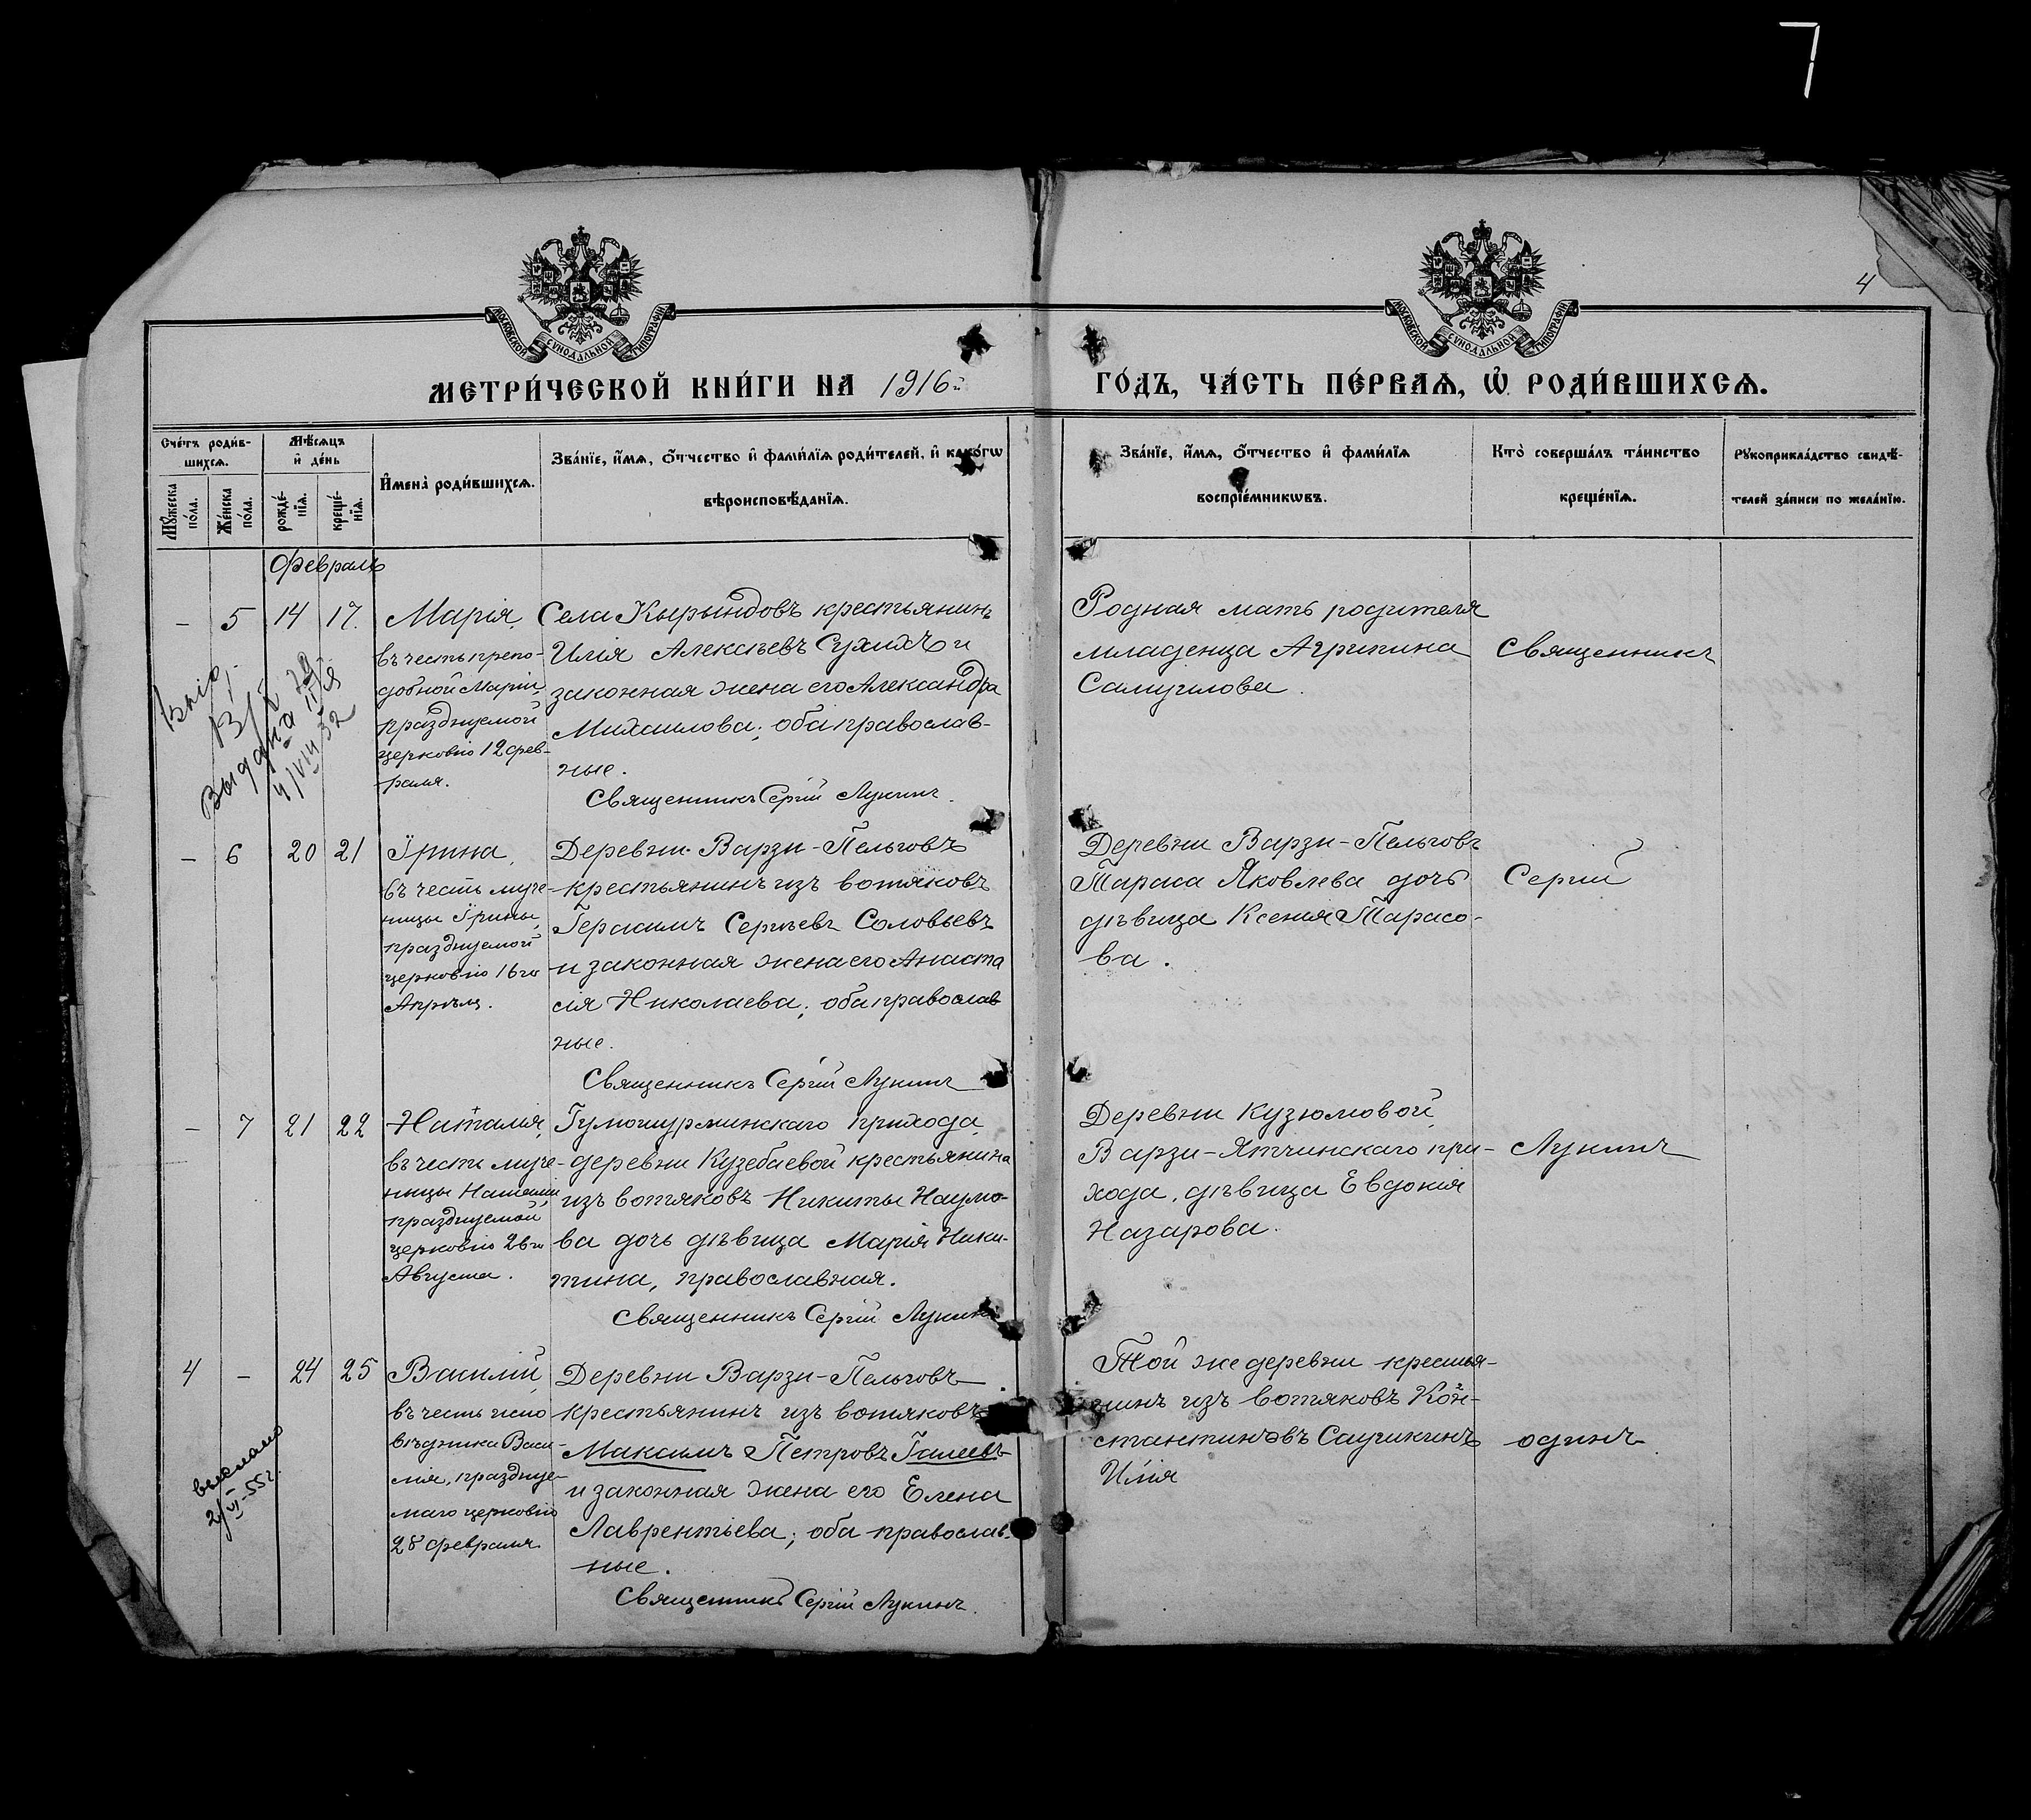 7
4
МОСКОВСКОЙ СѴНОДАЛЬНОЙ ТИПОГРАФІИ
МОСКОВСКОЙ СѴНОДАЛЬНОЙ ТИПОГРАФІИ
МЕТРИ́ЧЕСКОЙ КНИ́ГИ НА 1916й ГО́ДЪ, ЧА́СТЬ ПЕ́РВАѦ, Ѡ҆ РОДИ́ВШИХСѦ.
Сче́тъ роди́в-
шихсѧ.
Мѣ́сѧцъ
и҆ де́нь
Мꙋ́жеска по́ла.
Же́нска по́ла.
рожде́-нїѧ.
креще́-нїѧ.
И҆мена̀ роди́вшихсѧ.
Зва́нїе, и҆́мѧ, о҆́тчество и҆ фами́лїѧ роди́телей, и҆ како́гѡ
вѣроисповѣ́данїѧ.
Зва́нїе, и҆́мѧ, о҆́тчество и҆ фами́лїѧ
воспрїе́мникѡвъ.
Кто̀ соверша́лъ та́инство
креще́нїѧ.
Рꙋкоприкла́дство свидѣ́-
телей за́писи по жела́нїю.
Февраль
– 5 14 17. Марія,
въ честь препо-
добной Маріи,
празднуемой
церковію 12 фев-
раля.
Села Кырындовъ крестьянинъ
Илія Алексѣевъ Сухихъ и
законная жена его Александра
Михаилова; оба православ-
ные.
Священникъ Сергій Лукинъ.
Родная мать родителя
младенца Агрипина
Самуилова.
Священникъ
Выдана
4/VIII 32
– 6 20 21 Ірина,
въ честь муче-
ницы Ірины,
празднуемой
церковію 16го
Апрѣля.
Деревни Варзи-Пельговъ
крестьянинъ изъ вотяковъ
Герасимъ Сергѣевъ Соловьевъ
и законная жена его Анаста
сія Николаева; оба православ
ные.
Священникъ Сергій Лукинъ
Деревни Варзи-Пельговъ
Тараса Яковлева дочь
дѣвица Ксенія Тарасо-
ва.
Сергій
– 7 21 22 Наталія,
въ честь муче-
ницы Наталіи,
празднуемой
церковію 26го
Августа.
Гулюшурминскаго прихода,
деревни Кузебаевой крестьянина
изъ вотяковъ Никиты Наумо-
ва дочь дѣвица Марія Ники-
тина, православная.
Священникъ Сергій Лукинъ
Деревни Кузюмовой,
Варзи-Ятчинскаго при-
хода, дѣвица Евдокія
Назарова.
Лукинъ
4 – 24 25 Василій,
въ честь испо
вѣдника Васи-
лія, праздnуе-
маго церковію
28 февраля.
Деревни Варзи-Пельговъ
крестьянинъ изъ вотяковъ
Максимъ Петровъ Галеевъ
и законная жена его Елена
Лаврентіева; оба православ-
ные.
Священникъ Сергій Лукинъ.
Той же деревни крестья-
нинъ изъ вотяковъ Кон-
стантиновъ Саушкинъ
Илія
одинъ.
выслано
2/VI-55г.